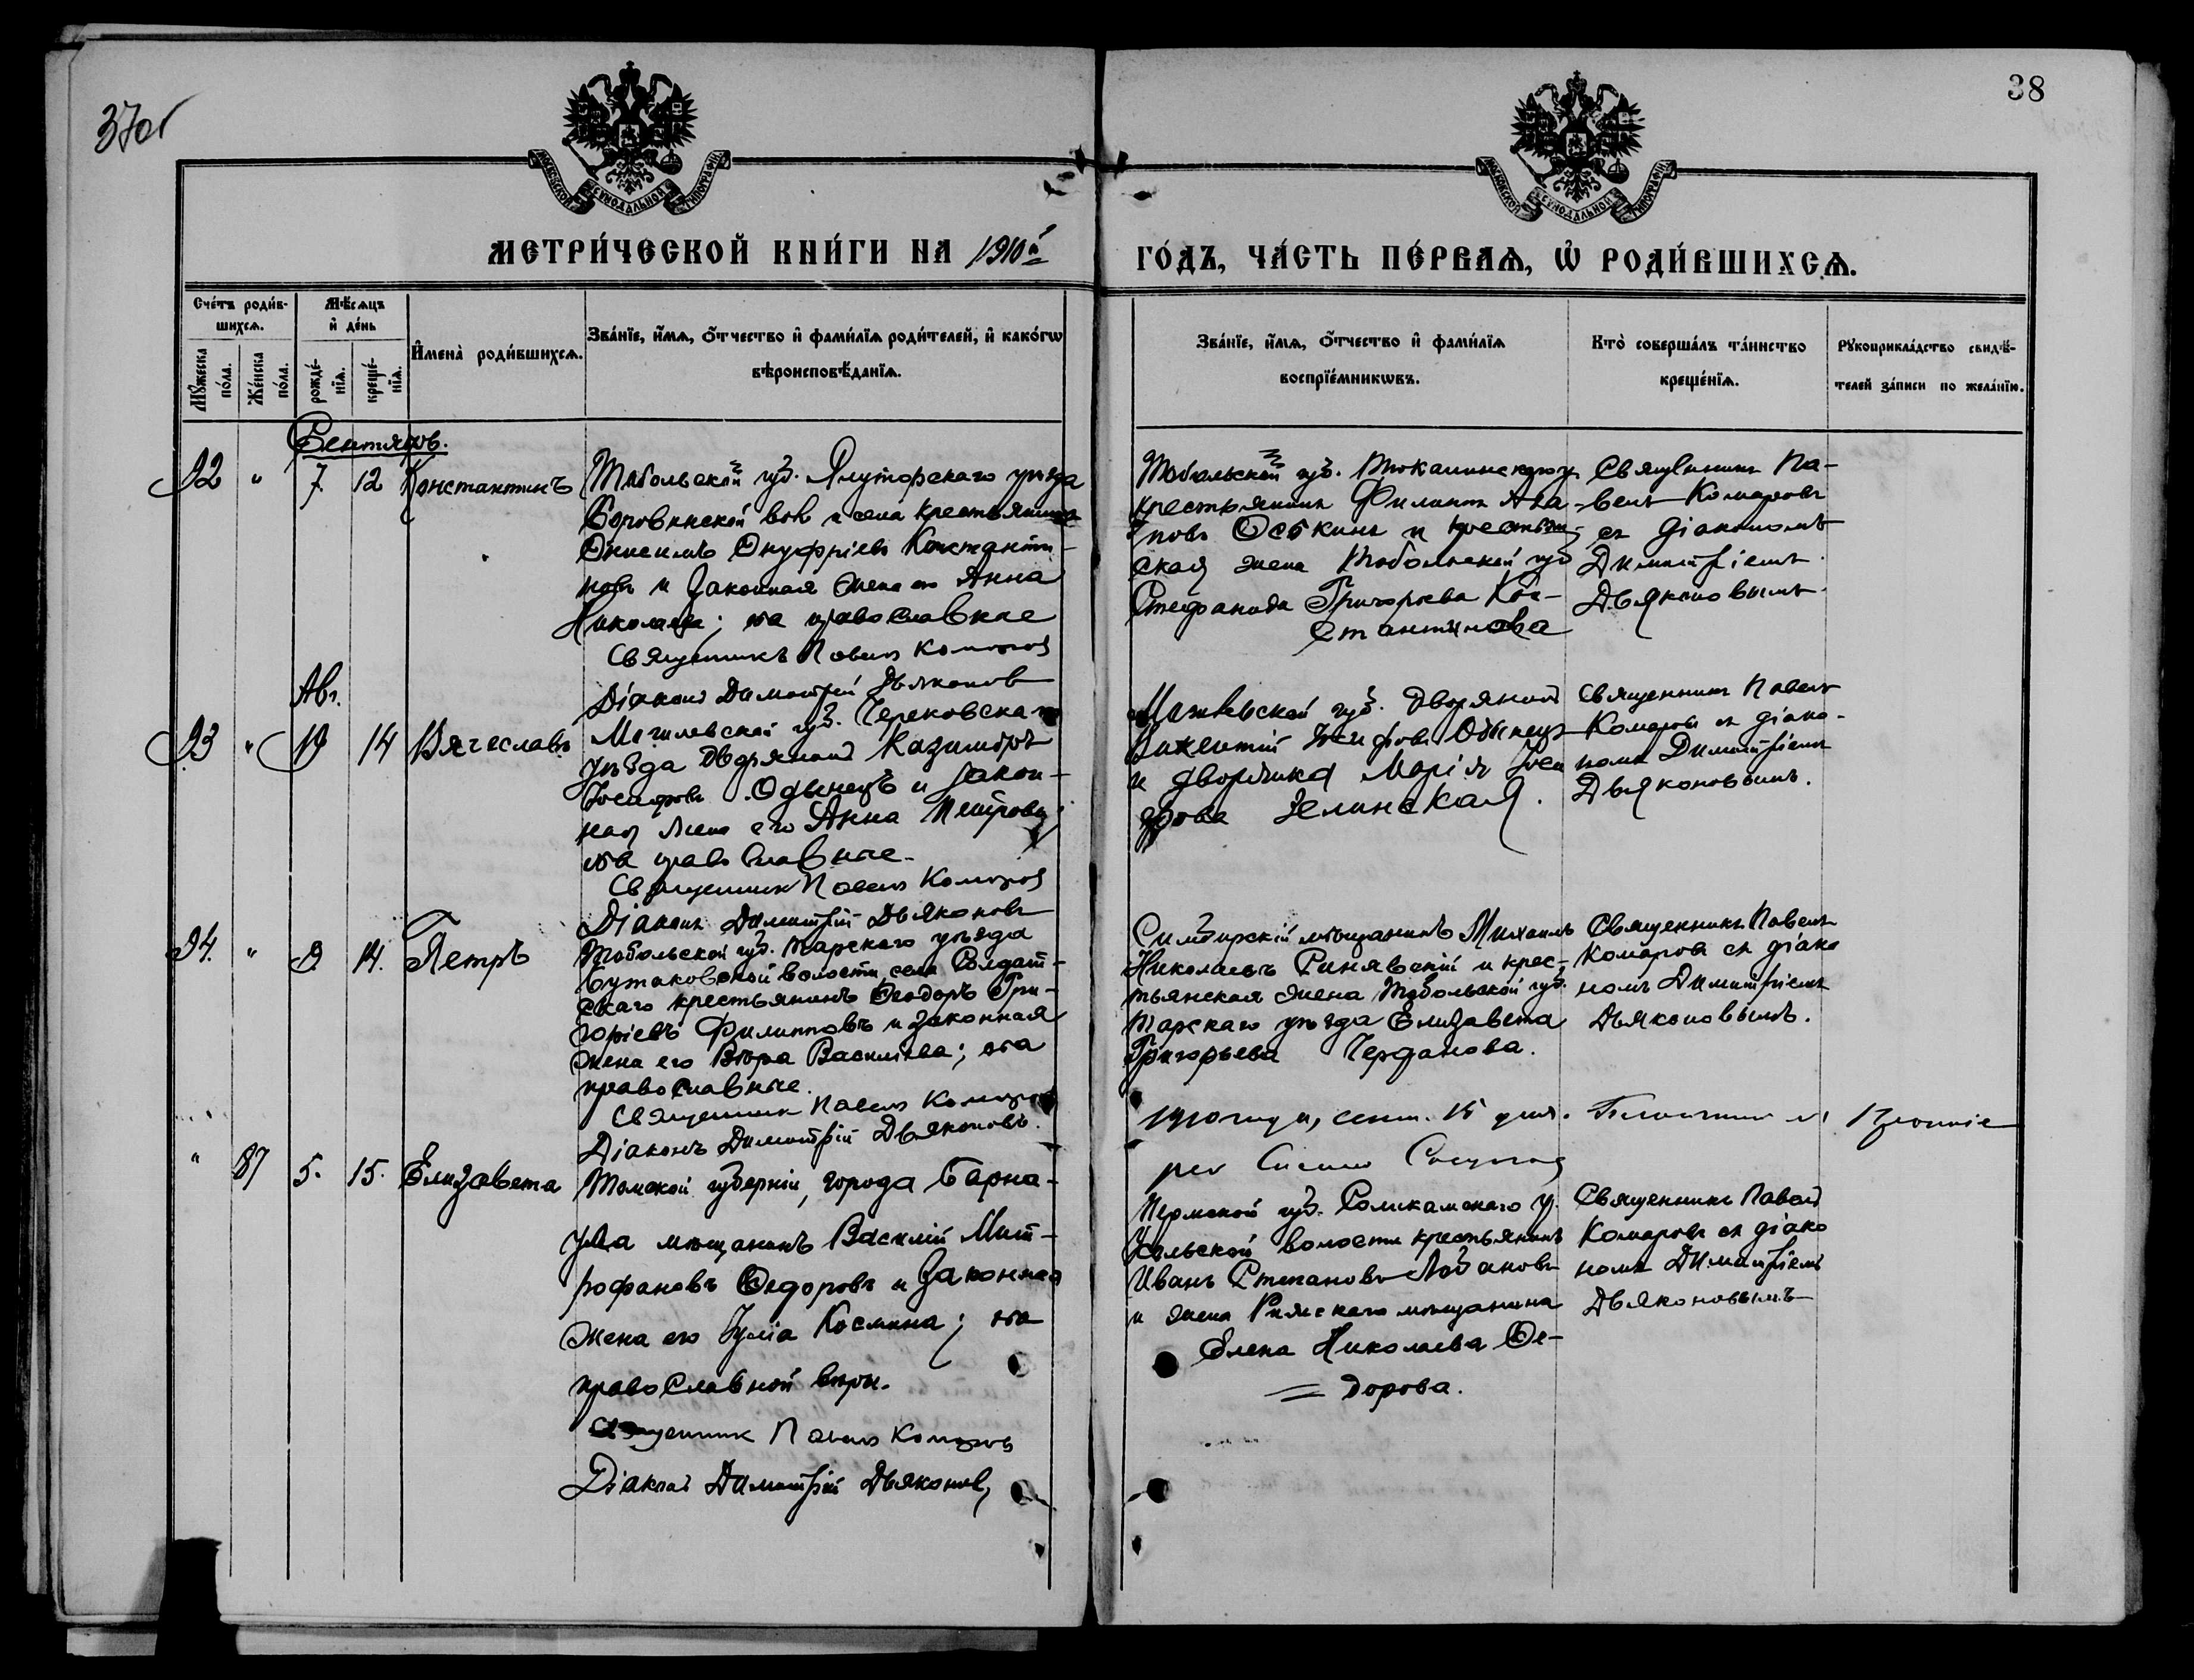 37об
38
МОСКОВСКОЙ СѴНОДАЛЬНОЙ ТИПОГРАФІИ
МОСКОВСКОЙ СѴНОДАЛЬНОЙ ТИПОГРАФІИ
МЕТРИ́ЧЕСКОЙ КНИ́ГИ НА 1910й
ГО́ДЪ, ЧА́СТЬ ПЕ́РВАѦ, Ѡ҆ РОДИ́ВШИХСѦ.
Сче́тъ роди́в-
шихсѧ.
Мꙋ́жеска по́ла.
Же́нска по́ла.
Мѣ́сѧцъ
и҆ де́нь
рожде́-
нїѧ.
креще́-
нїѧ.
И҆мена̀ роди́вшихсѧ.
Зва́нїе, и҆́мѧ, ѻ҆́тчество и҆ фамѝлїѧ роди́телей, и҆ како́гѡ
вѣроисповѣ́данїѧ.
Зва́нїе, и҆́мѧ, ѻ҆́тчество и҆ фамѝлїѧ
воспрїе́мникѡвъ.
Кто̀ соверша́лъ та́инство
креще́нїѧ.
Рꙋкоприкла́дство свидѣ́-
телей за́писи по жела́нїю.
Сентябрь.
22 " 7. 12 Константинъ
Тобольской губ. Ялуторскаго уѣзда
Боровинской вол и села крестьянинъ
Онисимъ Онуфріевъ Константи-
новъ и законная жена его Анна
Николаева; оба православные
Священникъ Павелъ Комаровъ
Діаконъ Димитрій Дьяконовъ
Тобольской губ. Тюкалинскаго у.
крестьянинъ Филиппъ
Оськинъ и крестьян-
ская жена Тобольской губ
Стефанида Григорьева Кон-
стантинова
Священникъ Па-
велъ Комаровъ
съ діакономъ
Димитріемъ
Дьяконовымъ.
Авг.
23 " 19 14 Вячеславъ
Могилевской губ. Чериковскаго
уѣзда дворянинъ Казимиръ
Іосифовъ Одынецъ и закон-
ная жена его Анна Петрова;
оба православные.
Священникъ Павелъ Комаровъ
Діаконъ Димитрій Дьяконовъ
Могилевской губ. дворянинъ
Викентій Іосифовъ Одынецъ
и дворянка Марія Іоси
фова Зелинская.
Священникъ Павелъ
Комаровъ съ діако-
номъ Димитріемъ
Дьяконовымъ.
24. " 9. 14. Петръ
Тобольской губ. Тарскаго уѣзда
Бутаковской волости села Солдат-
скаго крестьянинъ Ѳеодоръ Гри-
горіевъ Филипповъ и законная
жена его Вѣра Васильева; оба
православные.
Священникъ Павелъ Комаровъ
Діаконъ Димитрій Дьяконовъ.
Симбирскій мѣщанинъ Михаилъ
Николаевъ Синявскій и крес-
тьянская жена Тобольской губ.
Тарскаго уѣзда Елизавета
Григорьева Черданова.
Священникъ Павелъ
Комаровъ съ діако
номъ Димитріемъ
Дьяконовымъ.
1910 года, сент. 15 дня.
" 87 5. 15. Елизавета
Томской губерніи, города Барна-
ула мѣщанинъ Василій Мит-
рофановъ Ѳедоровъ и законная
жена его Іулія Космина; оба
православной вѣры.
Священникъ Павелъ Комаровъ
Діаконъ Димитрій Дьяконовъ
Пермской губ. Соликамскаго у.
Усольской волости крестьянинъ
Иванъ Степановъ Лобановъ
и жена мѣщанина
Елена Николаева Ѳе-
= дорова.
Священникъ Павелъ
Комаровъ съ діако
номъ Димитріемъ
Дьяконовымъ